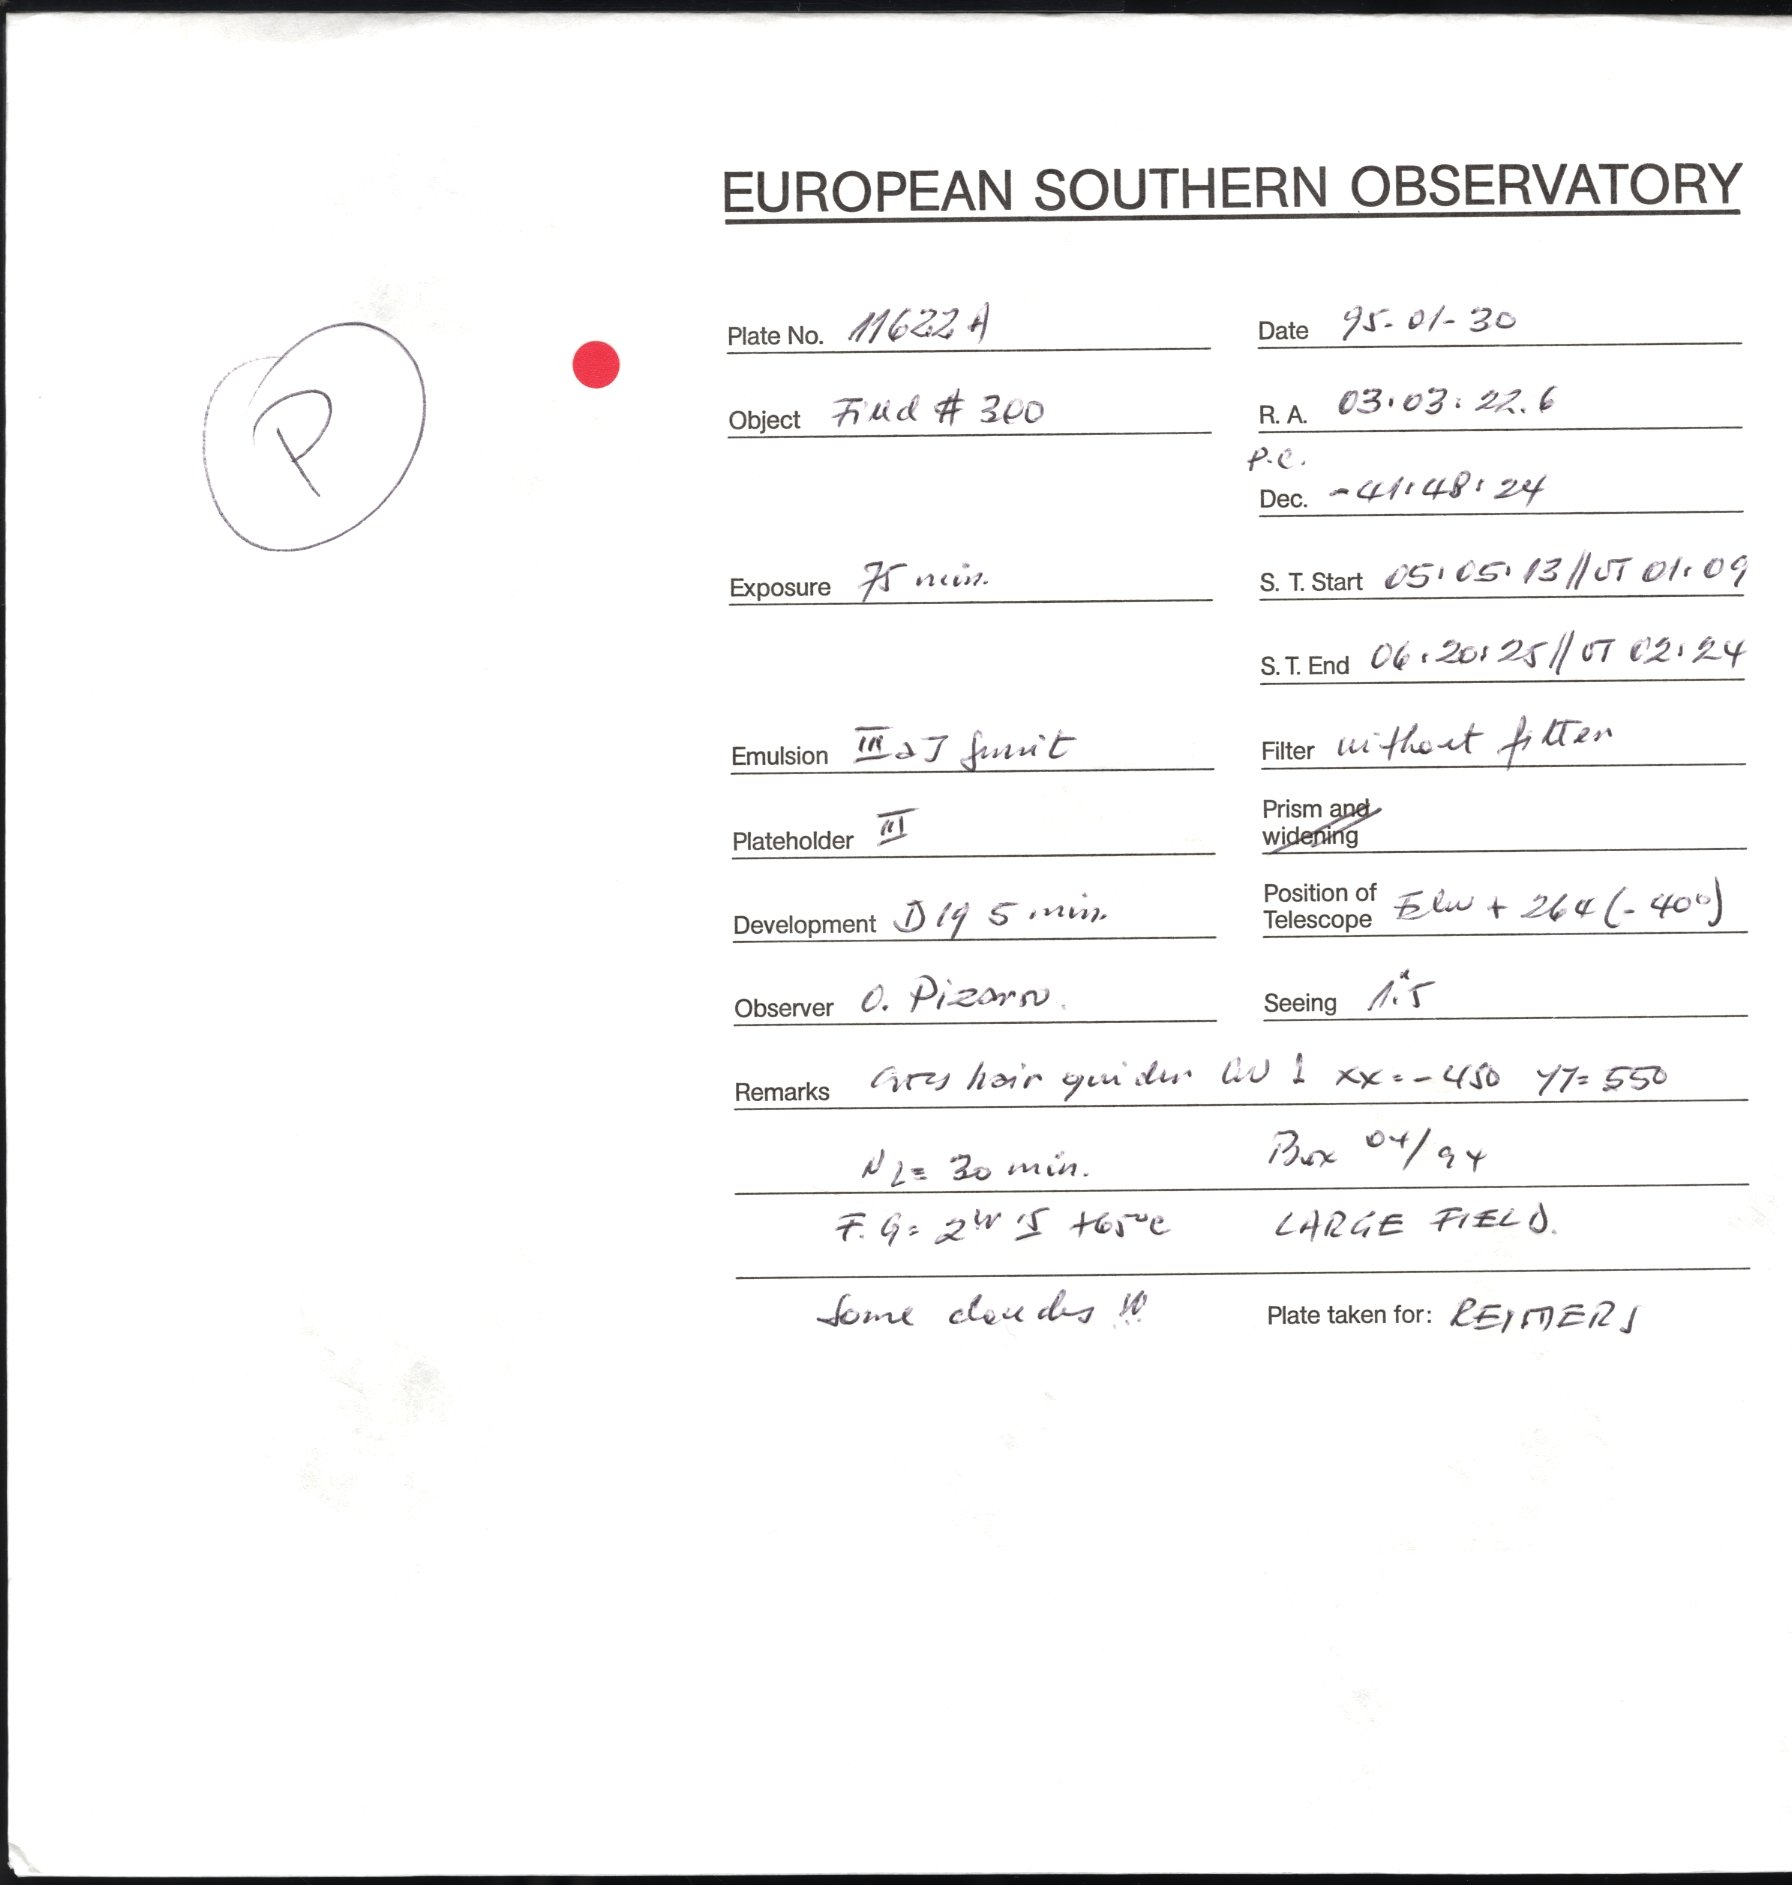 EUROPEAN SOUTHERN OBSERVATORY
P
Plate No. 11622 A Date 95-01-30
Object Field # 300 R. A. 03:03:22.6
P.C.
Dec. -41:48:24
Exposure 75 min. S. T. Start 05:05:13 // UT 01:09
S. T. End 06:20:25 // UT 02:24
Emulsion III a J Filter without filter
Plateholder III Prism and widening
Development D 19 5 min. Position of Telescope + 264 (-40°)
Observer O. Pizarro. Seeing 1".5
Remarks hair guider 1 xx=-450 yy=550
N2= 30 min. Box 04/94
F.G= +65°C LARGE FIELD.
Some cloudes !!! Plate taken for: REIMERS